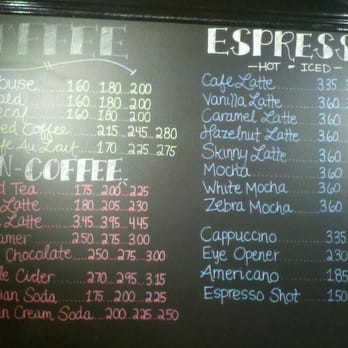 COFFEE
ouse 1.60 ... 1.80 .. 2.00
ald 1.60 ... 1.80 .. 2.00
ecaf 1.60 ... 1.80 .. 2.00
ed Coffee ..... 2.15 ... 2.45 .. 2.80
fe Au Lait ..... 1.70 ... 2.25 .. 2.75
N-COFFEE
d Tea ...... 1.75 .. 2.00 .. 2.25
Latte ....... 1.80 .. 2.05 .. 2.30
Latte ..... 3.45 .. 3.95 .. 4.45
amer ..... 2.50 ... 2.75 .. 3.00
Chocolate .... 2.50 .. 2.75 .. 3.00
le Cider ..... 2.70 ... 2.95 .. 3.15
ian Soda ...... 1.75 .. 2.00 .. 2.25
n Cream Soda .. 2.00 .. 2.25 .. 2.50
ESPRESS
- HOT or ICED -
Cafe Latte ........ 3.35
Vanilla Latte .... 3.60
Caramel Latte ... 3.60
Hazelnut Latte .. 3.60
Skinny Latte ..... 3.60
Mocha ............. 3.60
White Mocha ..... 3.60
Zebra Mocha ..... 3.60
Cappuccino ....... 3.35
Eye Opener ....... 2.30
Americano ........ 1.85
Espresso Shot .... 1.50